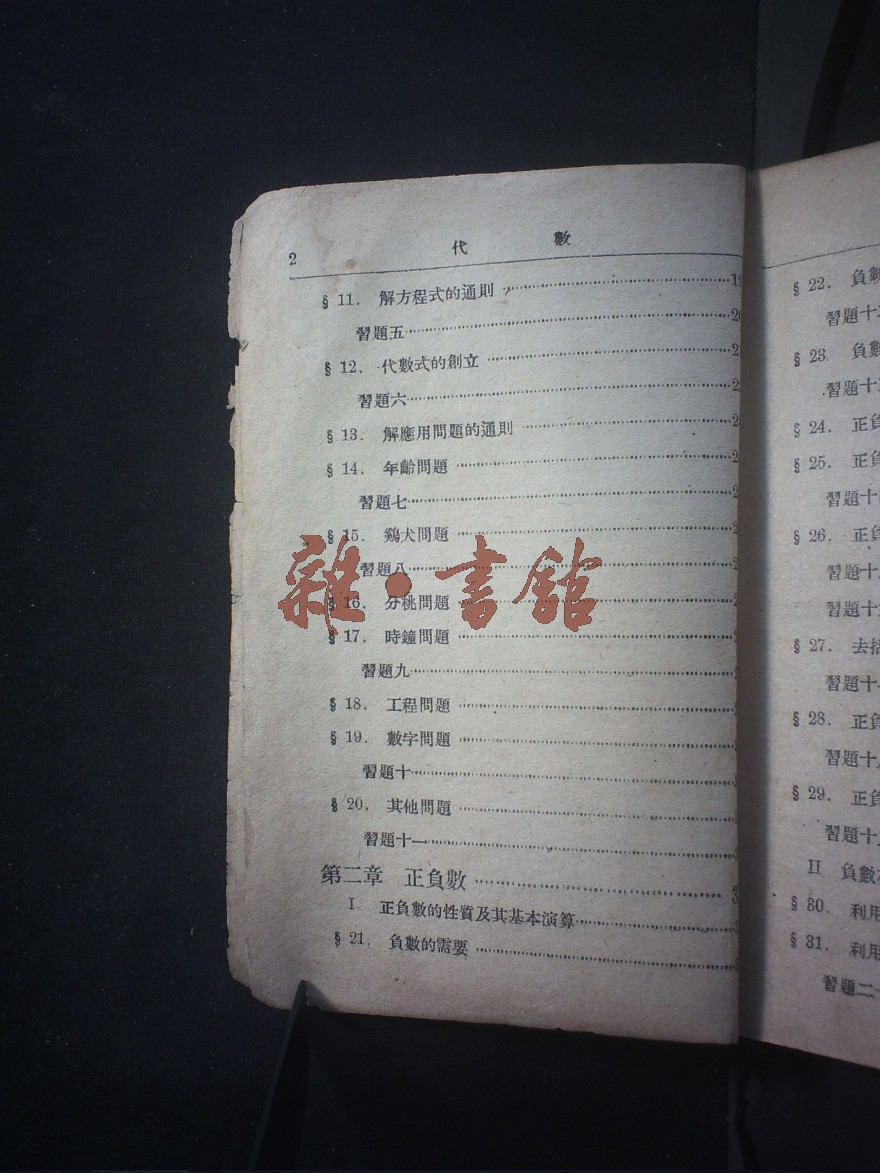 2 代數
§ 11. 解方程式的通則
習題五
§ 12. 代數式的創立
習題六
§ 13. 解應用問題的通則
§ 14. 年齡問題
習題七
§ 15. 鷄犬問題
習題八
§ 16. 分桃問題
§ 17. 時鐘問題
習題九
§ 18. 工程問題
§ 19. 數字問題
習題十
§ 20. 其他問題
習題十一
第二章 正負數
I 正負數的性質及其基本演算
§ 21. 負數的需要
雜·書館
§ 22. 負數
習題十
§ 23 負數
習題十
§ 24. 正負
§ 25. 正負
習題十
§ 26. 正負
習題十
習題十
§ 27. 去括
習題十
§ 28. 正負
習題十
§ 29. 正負
習題十
II 負數
§ 30. 利用
§ 31. 利用
習題二十